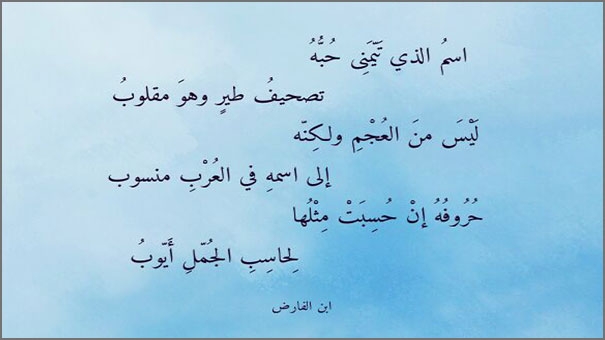 اسمُ الذي تَيّمَنِى حُبُّهُ
تصحيفُ طيرٍ وهوَ مقلوبُ
لَيْسَ منَ العُجْمِ ولكِنّه
إلى اسمهِ في العُرْبِ منسوب
حُرُوفُهُ إنْ حُسِبَتْ مِثْلُها
لِحاسِبِ الجُمّلِ أَيّوبُ
ابن الفارض